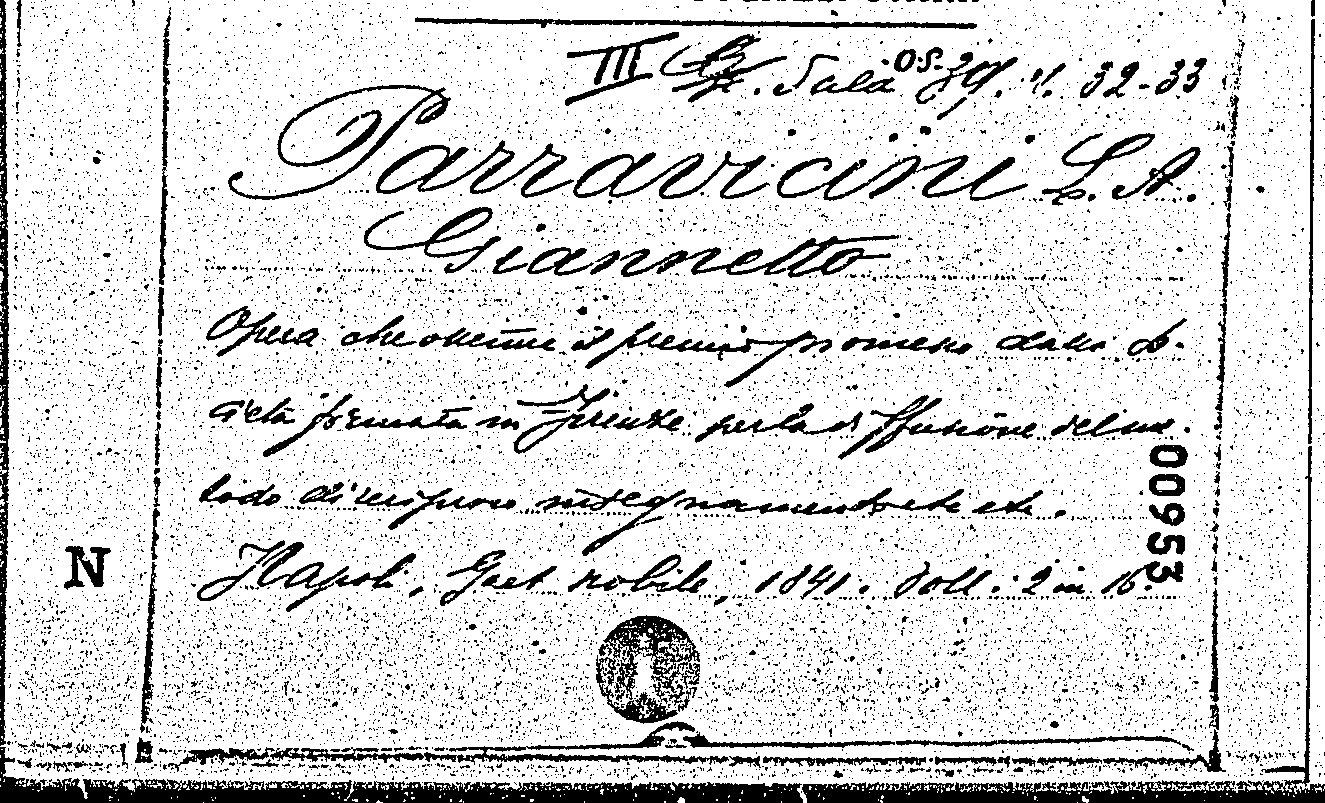 III Sala O.S. 29. 4. 32-33
Parravicini L. A.
Giannetto
Opera che ottenne il premio promesso dalla So-
cietà formata in Firenze per la diffusione del me-
todo di reciproco insegnamento etc etc.
00953
N
Napoli, Gaet. Nobile, 1841. Voll. 2 in 16.°